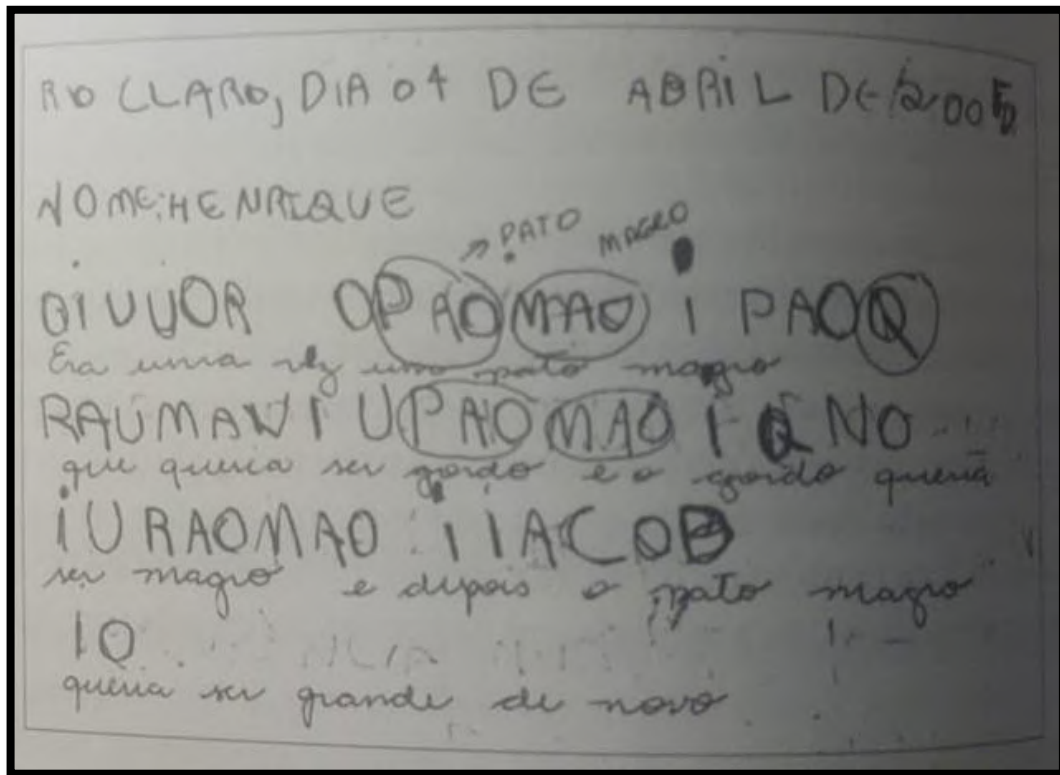 RIO CLARO, DIA 04 DE ABRIL DE 200
NOME: HENRIQUE
PATO MAGRO
OIUUOR OPAOMAO I PAOQ
Era uma vez um pato magro
RAUMAN I UPAOMAO I Q NO
que queria ser gordo e o gordo queria
IURAOMAO IIACOB
ser magro e depois o pato magro
IO
queria ser grande de novo